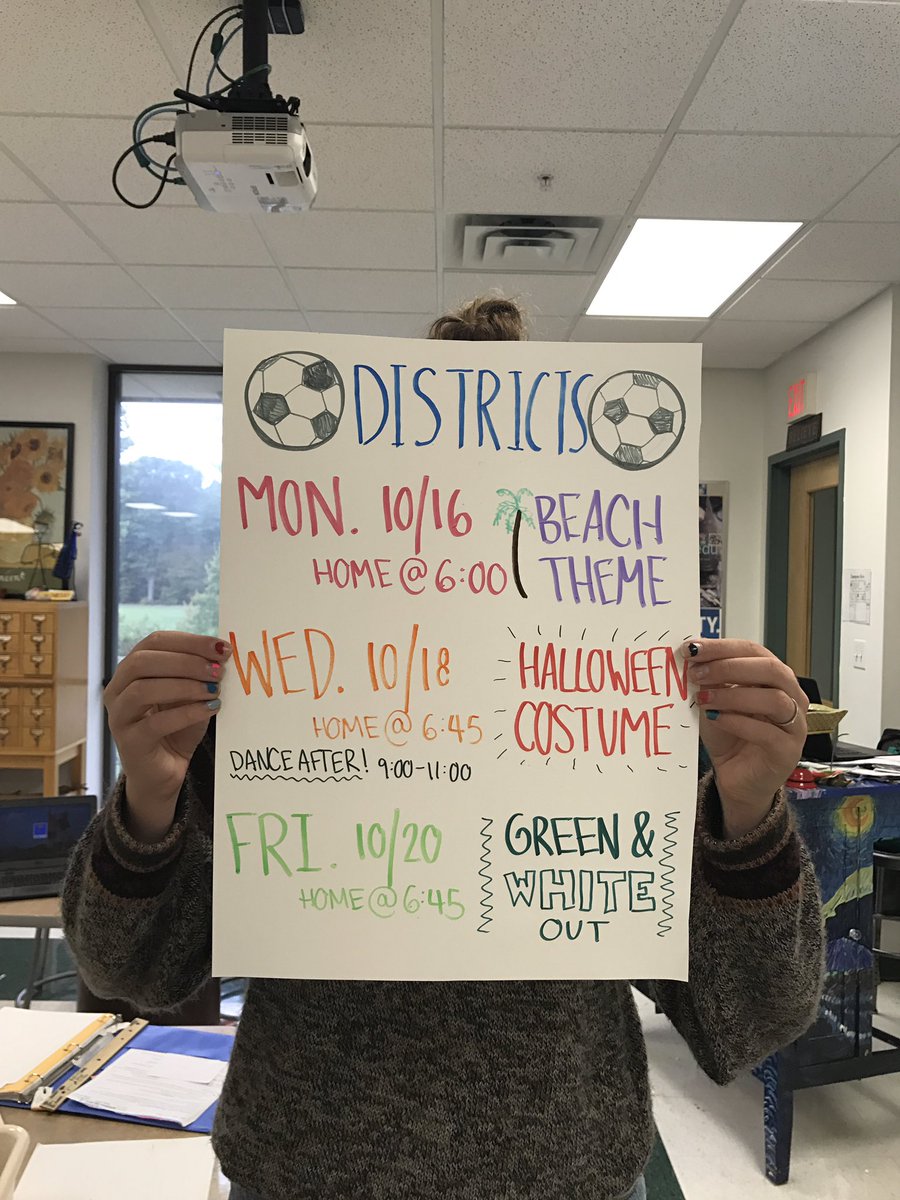 DISTRICTS
MON. 10/16
HOME @ 6:00
BEACH
THEME
WED. 10/18
HOME @ 6:45
DANCE AFTER! 9:00-11:00
HALLOWEEN
COSTUME
FRI. 10/20
HOME @ 6:45
GREEN &
WHITE
OUT
EXIT